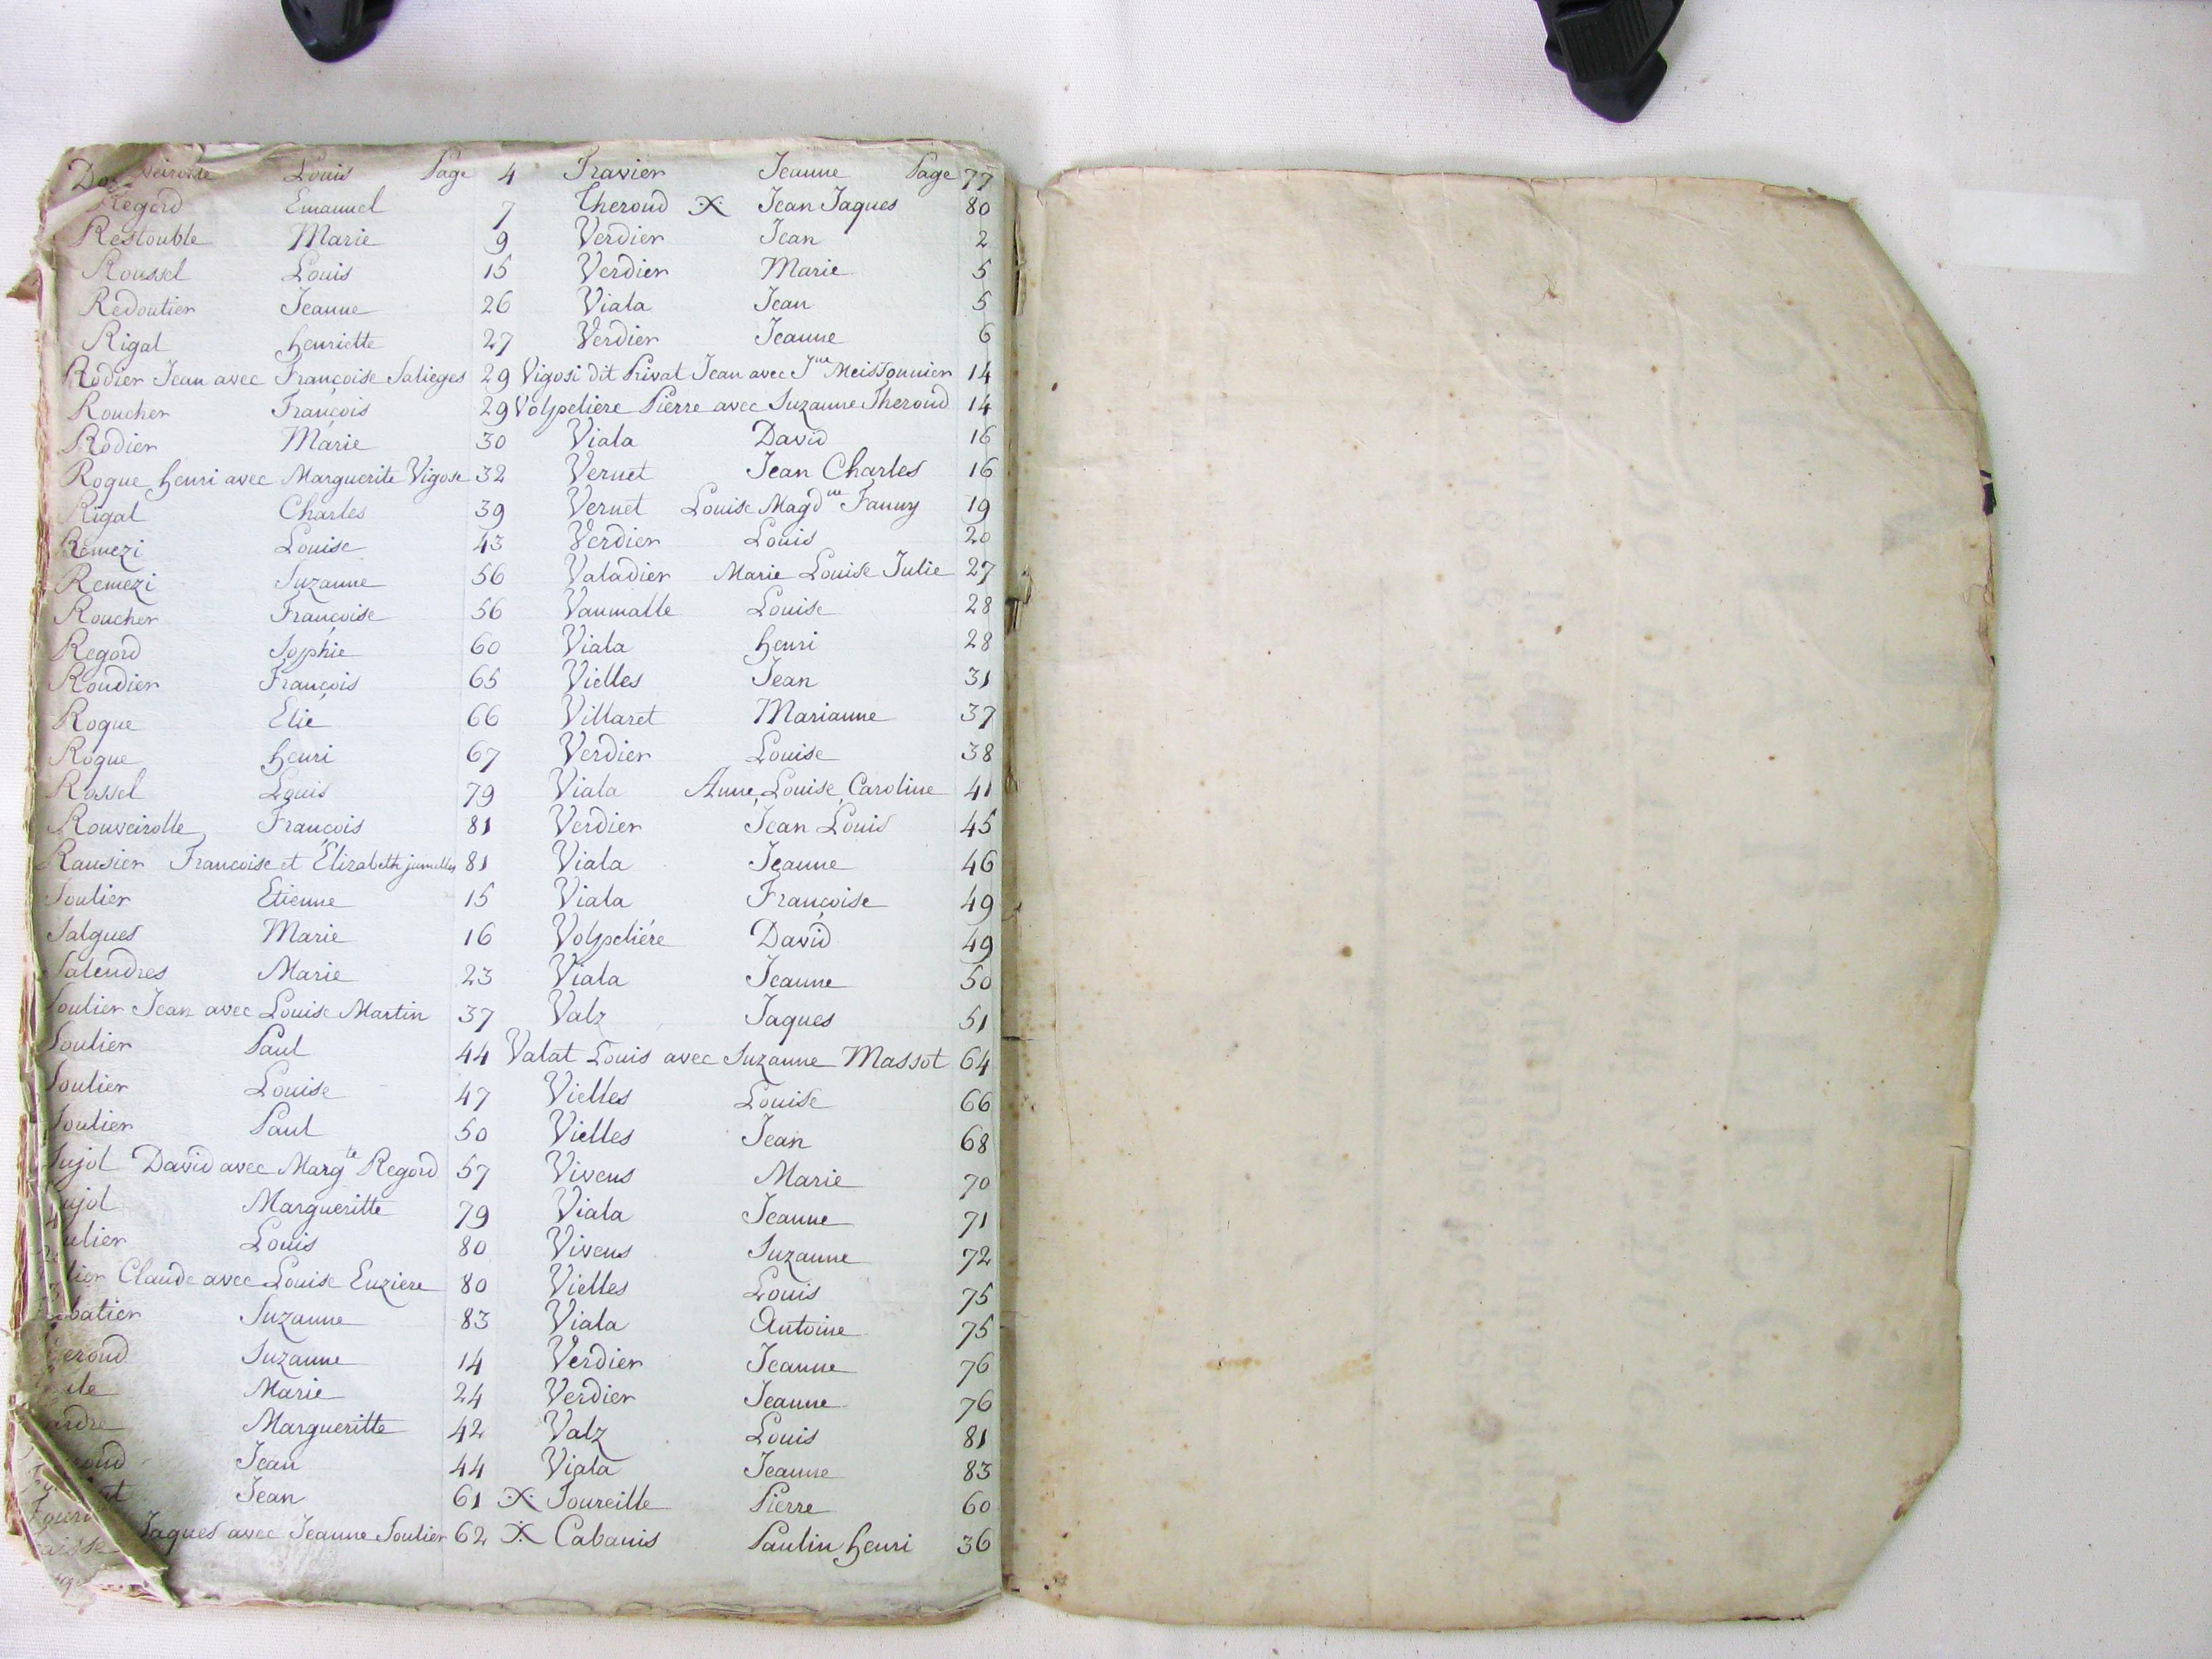 Louis Page 4
Regord Emanuel 7
Restouble Marie 9
Roussel Louis 15
Redoutier Jeanne 26
Rigal henriette 27
Rodier Jean avec Françoise Salieges 29
Roucher François 29
Rodier Marie 30
Roque henri avec Marguerite Vigose 32
Rigal Charles 39
Remezi Louise 43
Remezi Suzanne 56
Roucher Françoise 56
Regord Sophie 60
Roudier François 65
Roque Elie 66
Roque henri 67
Rossel Louis 79
Rouveirolle François 81
Rausier Francoise et Elizabeth jumelles 81
Soulier Etienne 15
Salgues Marie 16
Salendres Marie 23
Soulier Jean avec Louise Martin 37
Soulier Paul 44
Soulier Louise 47
Soulier Paul 50
Sujol David avec Margte Regord 57
Margueritte 79
Louis 80
Claude avec Louise Euziere 80
Suzanne 83
Suzanne 14
Marie 24
Margueritte 42
Jean 44
Jean 61
Jaques avec Jeanne Soulier 62
Travier Jeanne Page 77
Theroud Jean Jaques 80
Verdier Jean 2
Verdier Marie 5
Viala Jean 5
Verdier Jeanne 6
Vigosi dit Privat Jean avec Jne Meissonnier 14
Volpeliere Pierre avec Suzanne Theroud 14
Viala David 16
Vernet Jean Charles 16
Vernet Louise Magdne Fanny 19
Verdier Louis 20
Valadier Marie Louise Julie 27
Vammalle Louise 28
Viala henri 28
Vielles Jean 31
Villaret Marianne 37
Verdier Louise 38
Viala Anne Louise Caroline 41
Verdier Jean Louis 45
Viala Jeanne 46
Viala Françoise 49
Volpeliére David 49
Viala Jeanne 50
Valz Jaques 51
Valat Louis avec Suzanne Massot 64
Vielles Louise 66
Vielles Jean 68
Vivens Marie 70
Viala Jeanne 71
Vivens Suzanne 72
Vielles Louis 75
Viala Antoine 75
Verdier Jeanne 76
Verdier Jeanne 76
Valz Louis 81
Viala Jeanne 83
Toureille Pierre 60
Cabanis Paulin henri 36